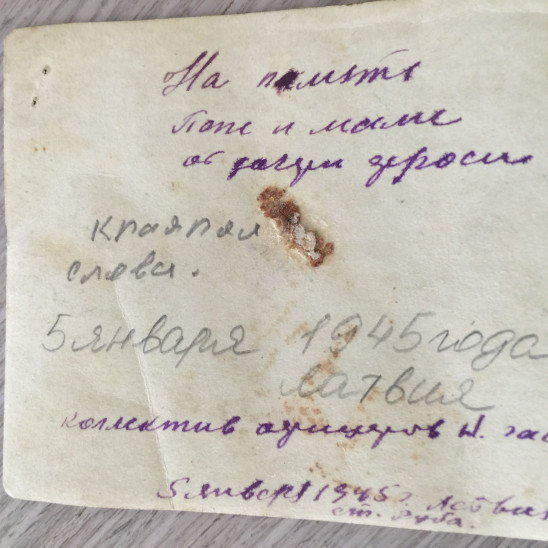 На память
Папе и маме
от дочери
крайняя
слева.
5 января 1945 года
Латвия
коллектив офицеров
5 января 1945 г. Латвия
ст. Руба.